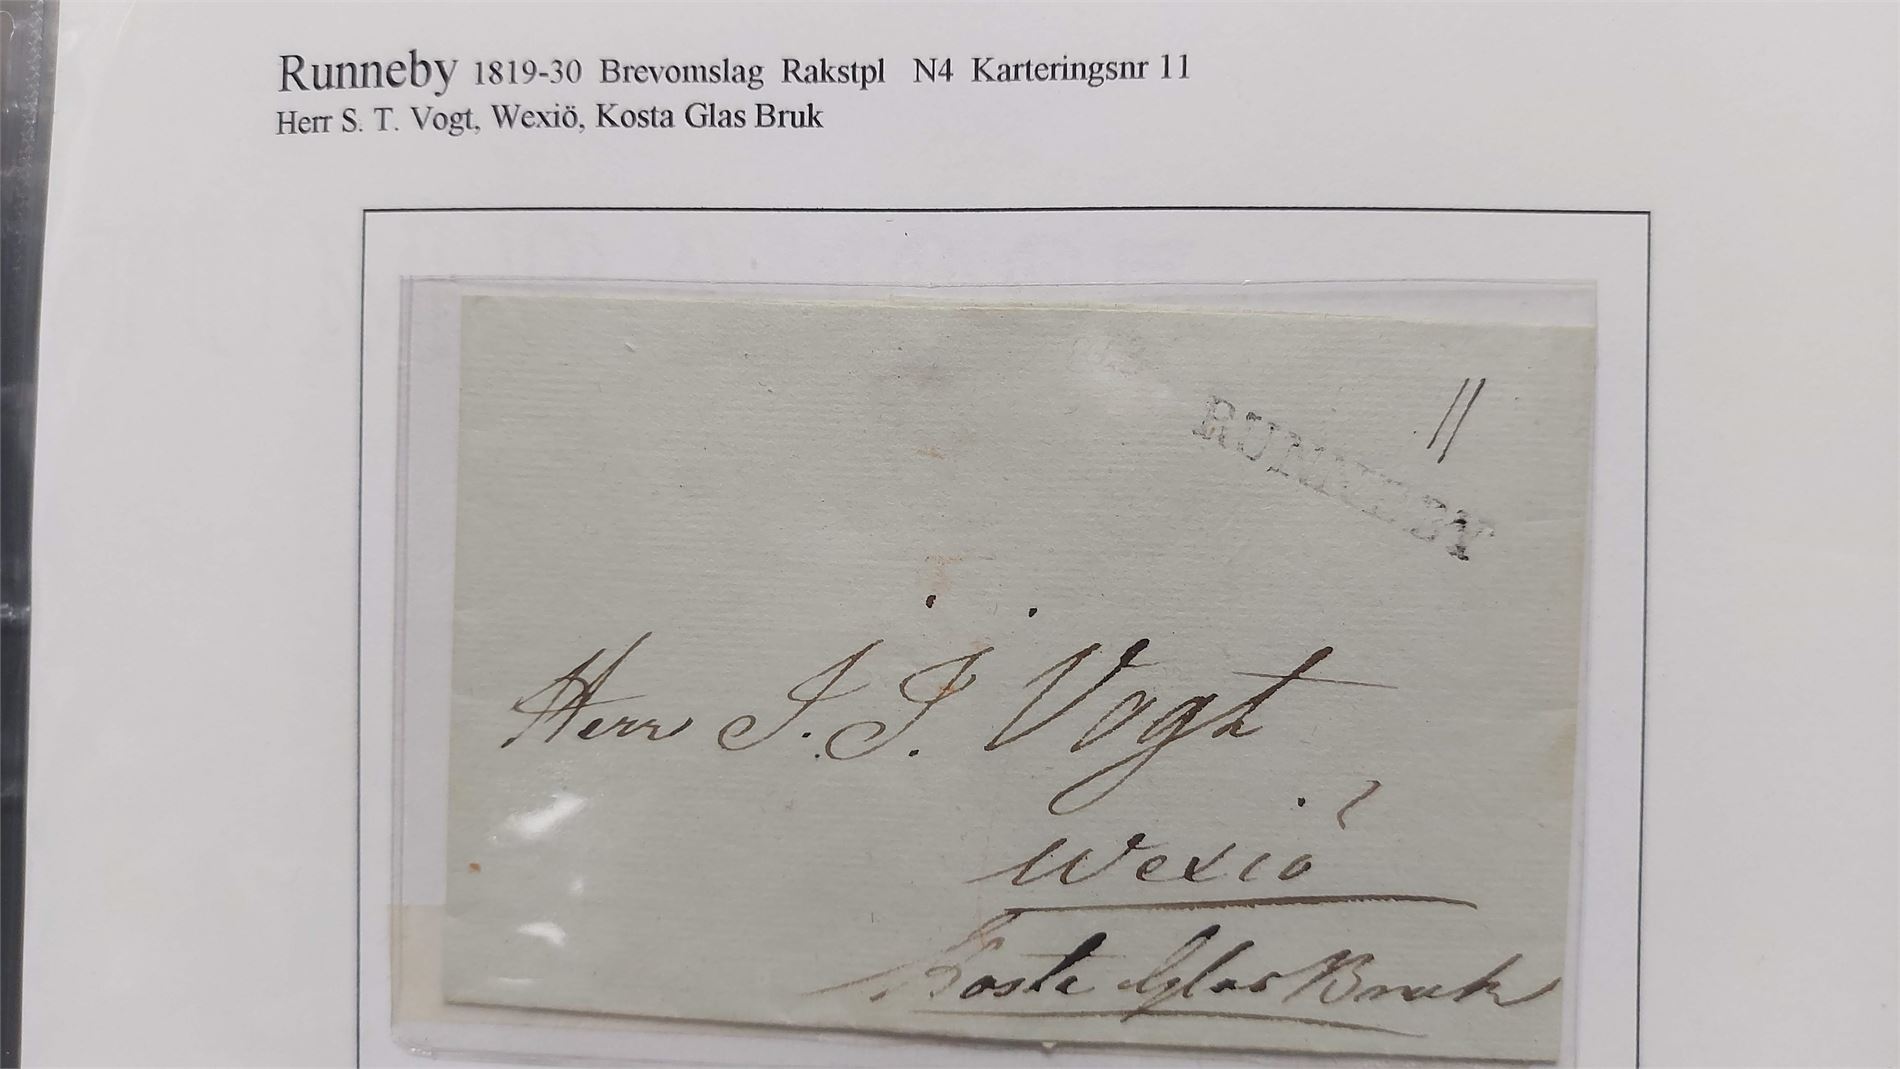 Runneby 1819-30 Brevomslag Rakstpl N4 Karteringsnr 11
Herr S. T. Vogt, Wexiö, Kosta Glas Bruk
11
RUNNEBY
Herr J. J. Vogt
Wexiö
Kosta Glas Bruk